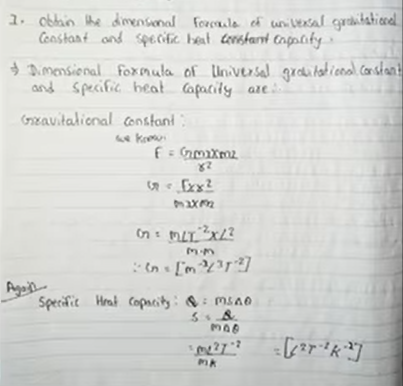 1. Obtain the dimensional formula of universal gravitational
constant and specific heat constant capacity.
→ Dimensional Formula of Universal gravitational constant
and specific heat capacity are:
Gravitational constant:
we know:
F = Gm1xm2
r2
G = Fxr2
m1xm2
G = MLT-2xL2
M.M
∴ G = [M-1L3T-2]
Again
Specific Heat Capacity: Q = msΔθ
S = Q
mΔθ
= ML2T-2
MK
= [L2T-2K-1]